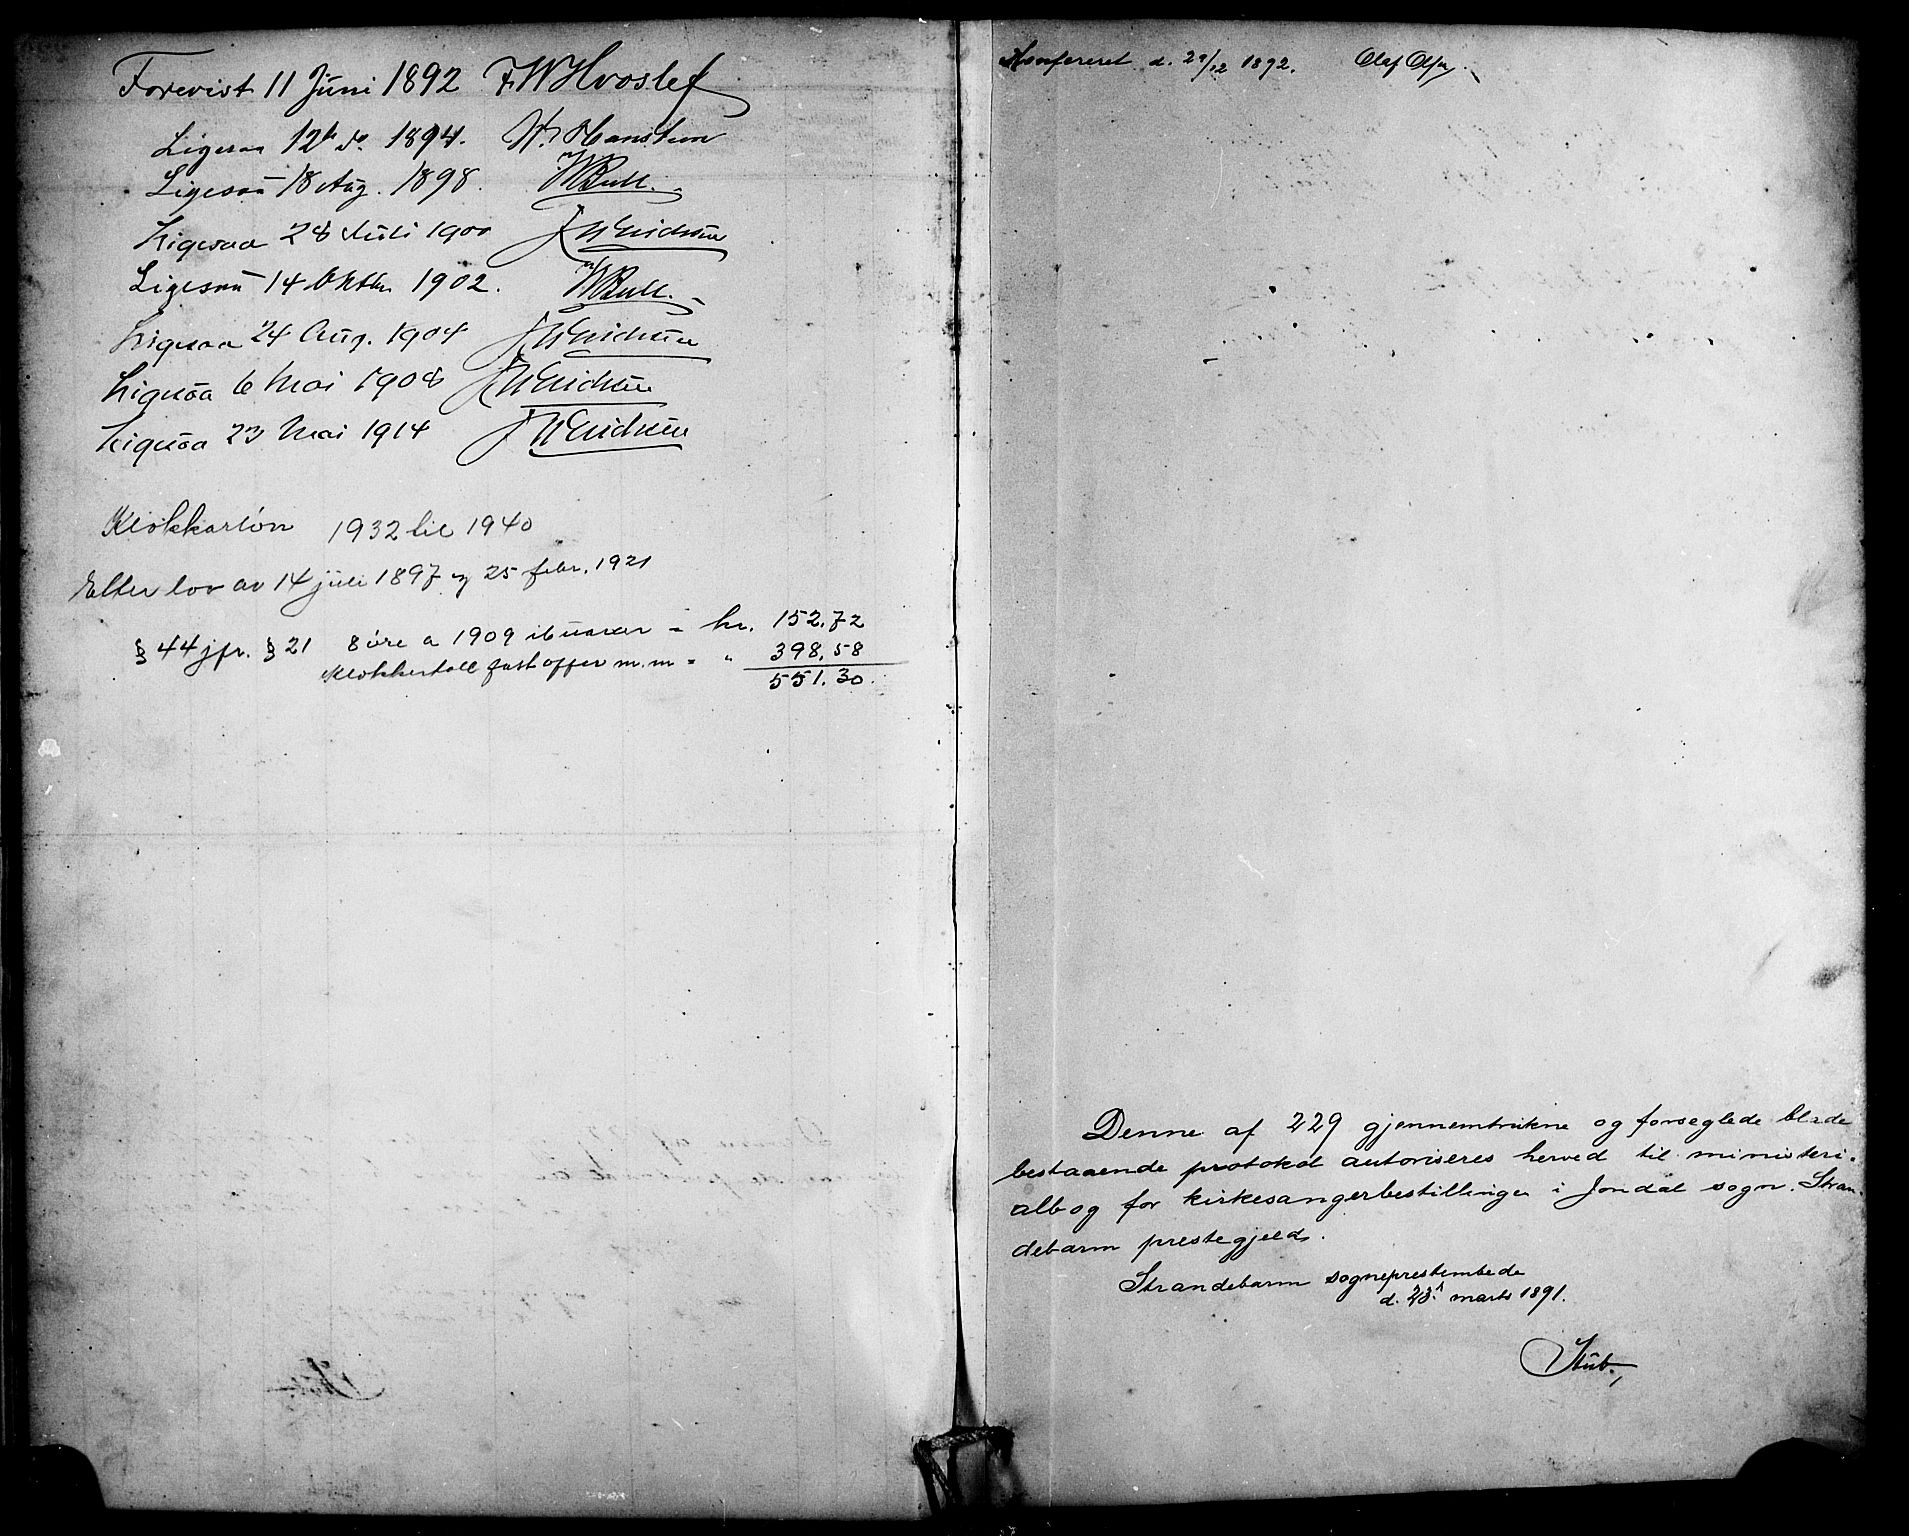 Forevist 11 Juni 1892 FW Hvoslef
Ligesaa 12te do. 1894. W. Hansteen
Ligesaa 18 Aug. 1898. W Bull.
Ligesaa 28 Juli 1900 J W Eriksen
Ligesaa 14 Oktbr 1902. W Bull.
Ligesaa 24 Aug. 1904 J W Eriksen
Ligesaa 6 Mai 1908 J W Eriksen
Ligesaa 23 Mai 1914 J W Eriksen
Klokkarløn 1932 til 1940
Etter lov av 14 juli 1897 og 25 febr. 1921
§ 44 jfr. § 21 8 øre a 1909 ibuarer = kr. 152,72
Klokkertoll fast offer m.m = " 398,58
551.30.
Konfereret d. /12 1892. Olaf
Denne af 229 gjennemtrukne og forseglede blade
bestaaende protokol autoriseres herved til ministeri-
albog for kirkesangerbestillingen i Jondal sogn. Stran-
debarm prestegjeld.
Strandebarm sogneprestembede
d. 23. marts 1891.
Stub.